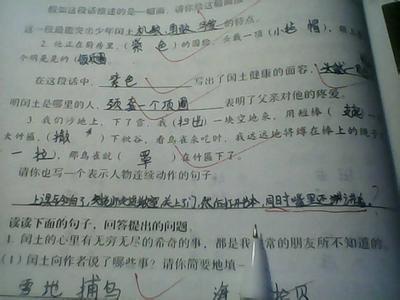 假如这段话描述的是一幅画,请你给这幅画
这一段最能突出少年闰土机敏、勇敢、的特点。
2. 他正在厨房里,(紫色)的圆脸,头戴一顶(小毡帽),颈上
个明晃晃的(银项圈
在这段话中,紫色写出了闰土健康的面容,头戴一
明闰土是哪里的人,颈套一个项圈表明了父亲对他的疼爱。
3. 我们沙地上,下了雪,我(扫出)一块空地来,用短棒(支起
大竹匾,(撒)下秕谷,看鸟雀来吃时,我远远地将缚在棒上的绳子
一拉,那鸟雀就(罩)在竹匾下了。
请你也写一个表示人物连续动作的句子。
上课 关上了门,然后打开书本,同时嘴里还
读读下面的句子,回答提出的问题。
1. 闰土的心里有无穷无尽的希奇的事,都是我常的朋友所不知道的。
(1) 闰土向作者说了哪些事?请你简要地填一
雪地捕鸟 海 拾贝